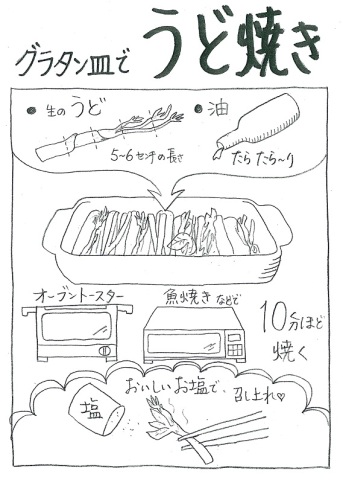 グラタン皿で うど焼き
● 生の うど
● 油
5〜6センチの長さ
たらたら〜り
オーブントースター
魚焼きなどで
10分ほど
焼く
おいしいお塩で、召し上れ♡
塩